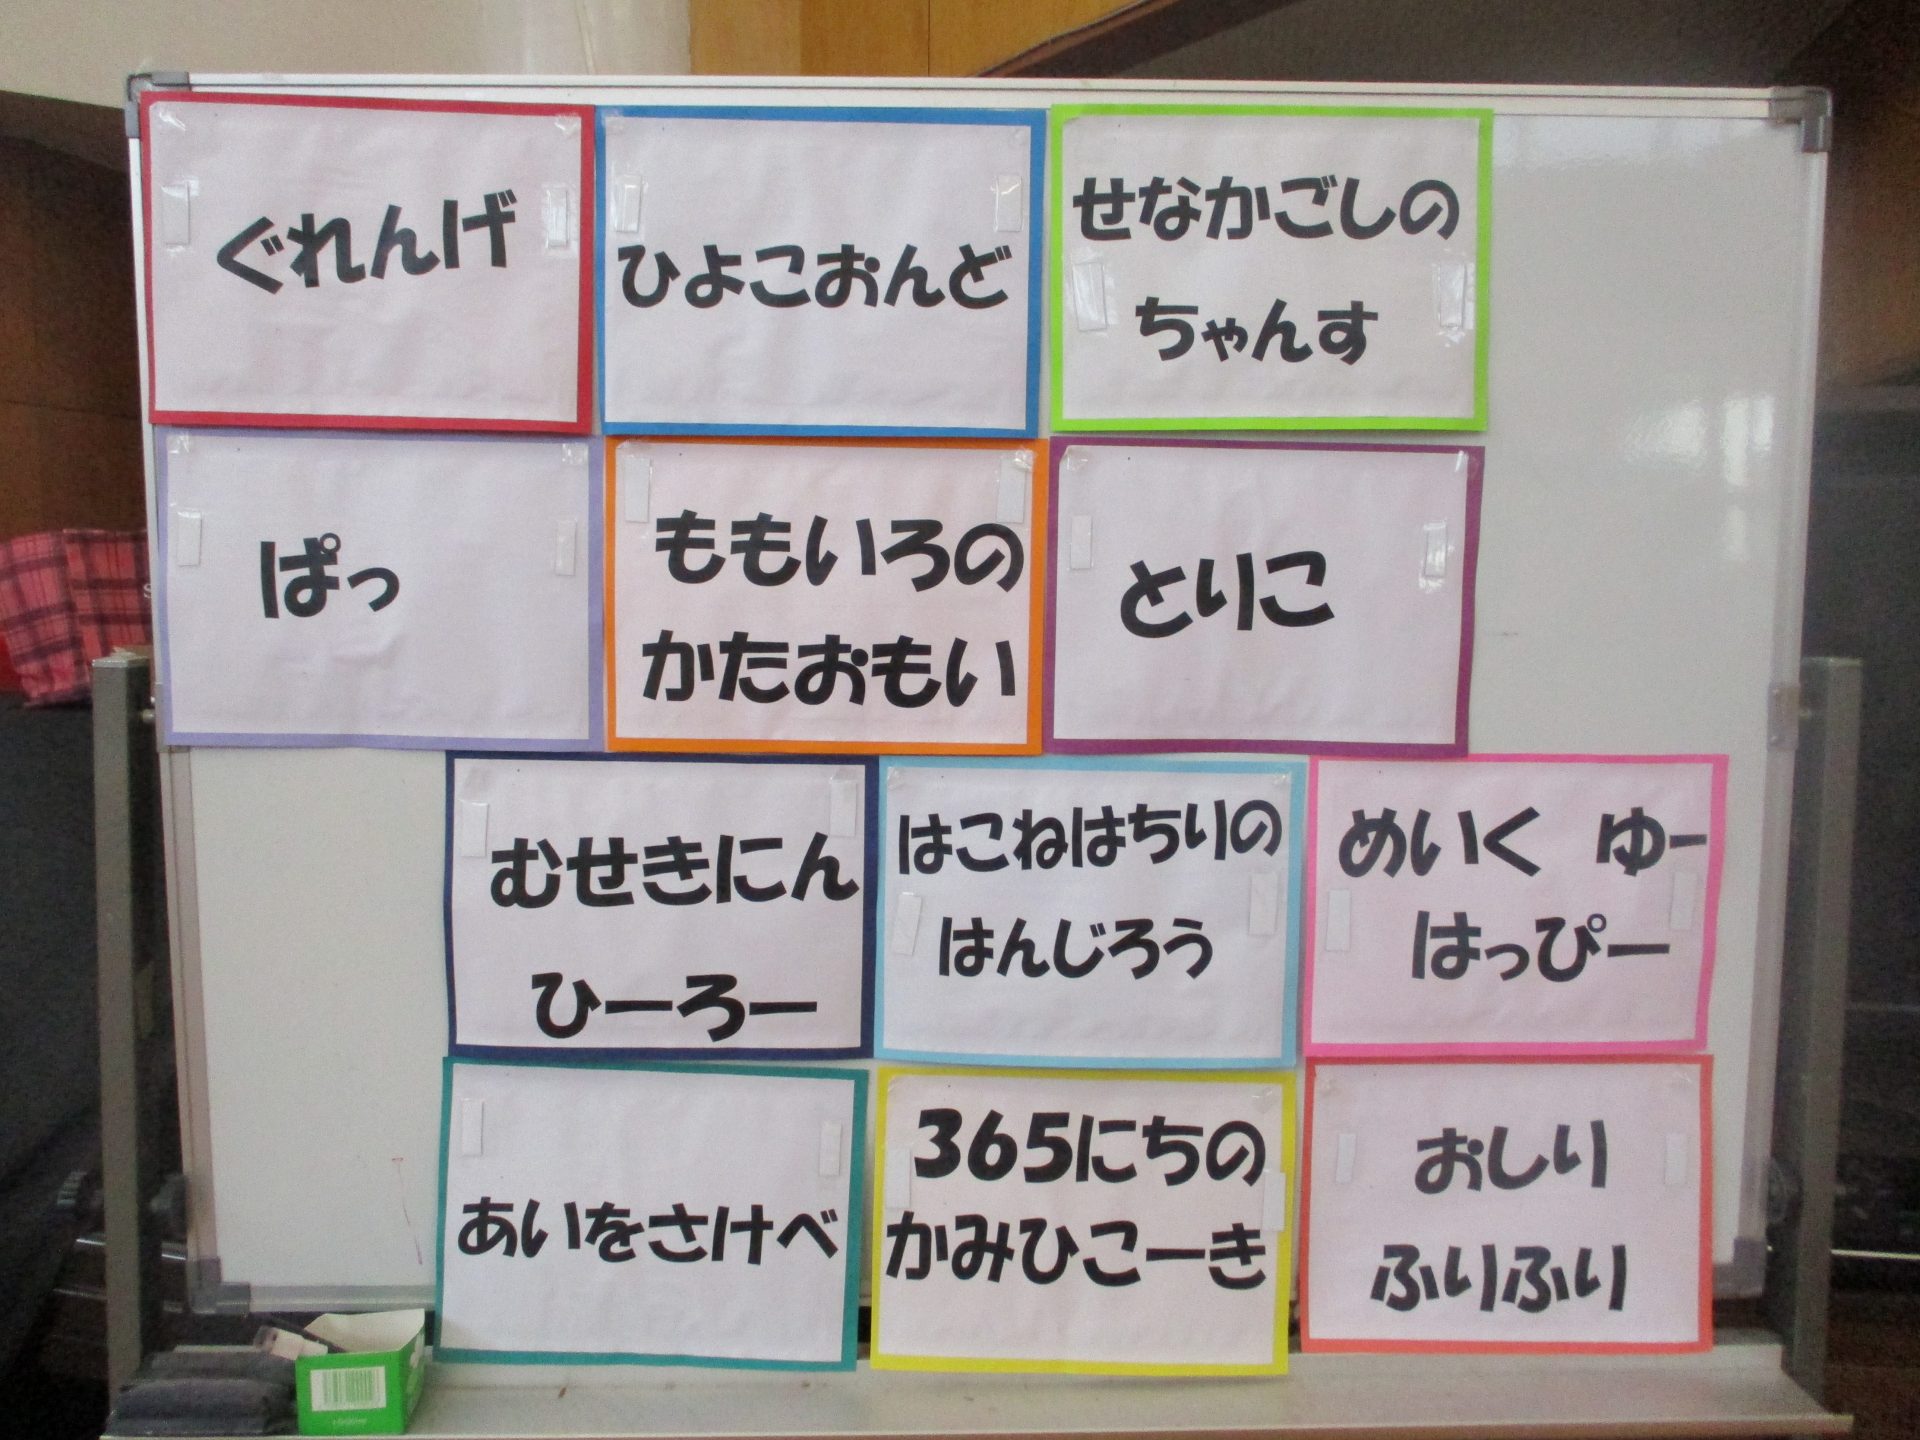 ぐれんげ
ひよこおんど
せなかごしの
ちゃんす
ぱっ
ももいろの
かたおもい
とりこ
むせきにん
ひーろー
はこねはちりの
はんじろう
めいく　ゆー
はっぴー
あいをさけべ
365にちの
かみひこーき
おしり
ふりふり